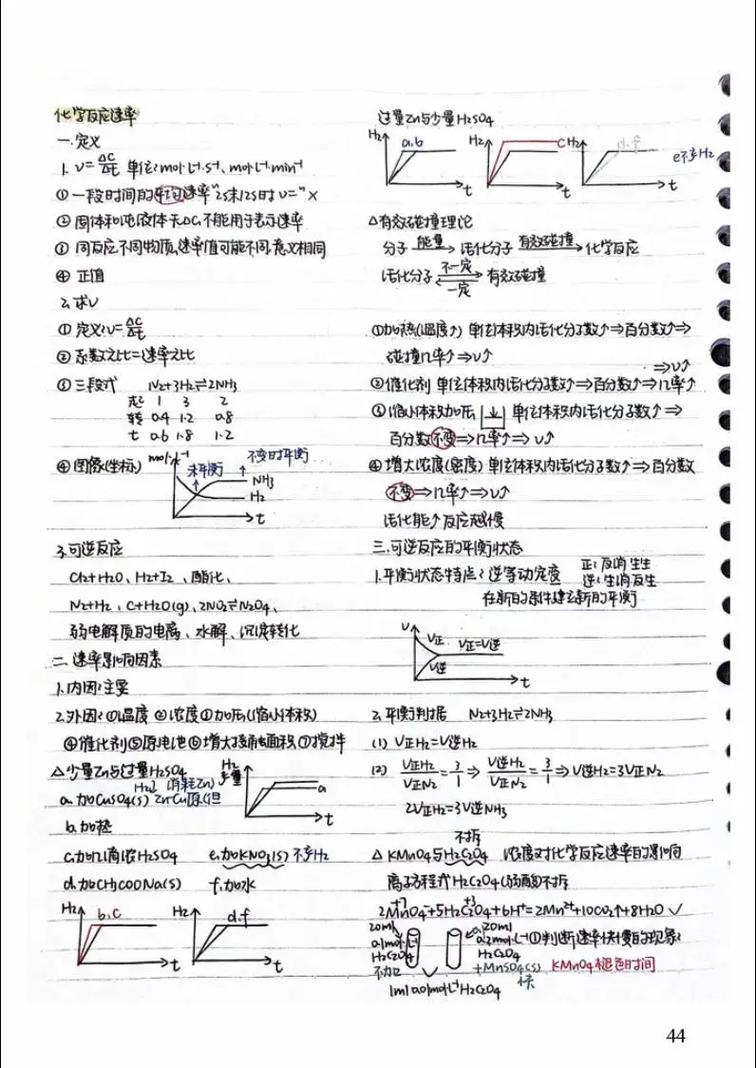 化学反应速率
一.定义
1. v=ΔC/Δt 单位:mol·L⁻¹·s⁻¹、mol·L⁻¹·min⁻¹
①一段时间的平均速率"2s末12s时v="×
②固体和纯液体无ΔC,不能用于表示速率
③同反应不同物质,速率值可能不同,意义相同
④正值
2.求v
①定义:v=ΔC/Δt
②系数之比=速率之比
③三段式 N₂+3H₂⇌2NH₃
起 1 3 2
转 0.4 1.2 0.8
t 0.6 1.8 1.2
④图像(坐标) mol·L⁻¹ 未平衡 不变时平衡
NH₃
H₂
t
3.可逆反应
Cl₂+H₂O、H₂+I₂、酯化、
N₂+H₂、C+H₂O(g)、2NO₂⇌N₂O₄、
弱电解质的电离、水解、沉淀转化
二.速率影响因素
1.内因:主要
2.外因:①温度 ②浓度 ③加压(缩小体积)
④催化剂⑤原电池⑥增大接触面积⑦搅拌
△少量Zn与过量H₂SO₄
a.加CuSO₄(s) Zn-Cu原电
H₂↓ (消耗Zn)
H₂ a t
b.加热
c.加几滴浓H₂SO₄ e.加KNO₃(s) 不产H₂
d.加CH₃COONa(s) f.加水
H₂ b.c t H₂ d.f t
过量Zn与少量H₂SO₄
H₂ a.b t H₂ c t H₂ d.f t e不产H₂
△有效碰撞理论
分子 能量→ 活化分子 有效碰撞→化学反应
活化分子 不一定⇌一定 有效碰撞
①加热(温度↑) 单位体积内活化分子数↑⇒百分数↑⇒
碰撞几率↑⇒v↑
⇒v↑
②催化剂 单位体积内活化分子数↑⇒百分数↑⇒几率↑
③缩小体积加压 单位体积内活化分子数↑⇒
百分数不变⇒几率↑⇒v↑
④增大浓度(密度) 单位体积内活化分子数↑⇒百分数
不变⇒几率↑⇒v↑
活化能↑反应越慢
三.可逆反应的平衡状态
1.平衡状态特点:逆等动定变 正:反消生生
逆:生消反生
在新的条件建立新的平衡
v v正 v正=v逆
v逆 t
2.平衡判据 N₂+3H₂⇌2NH₃
(1) v正H₂=v逆H₂
(2) v正H₂/v正N₂=3/1⇒v逆H₂/v正N₂=3/1⇒v逆H₂=3v正N₂
2v正H₂=3v逆NH₃
不拆
△KMnO₄与H₂C₂O₄ 浓度对化学反应速率的影响
离子方程式H₂C₂O₄(弱酸)不拆
+7 +3
2MnO₄⁻+5H₂C₂O₄+6H⁺=2Mn²⁺+10CO₂↑+8H₂O ✓
20ml 0.1mol·L⁻¹ H₂C₂O₄ 不加
20ml 0.2mol·L⁻¹ H₂C₂O₄ +MnSO₄(s) 快
①判断速率快慢的现象:
KMnO₄褪色时间
44